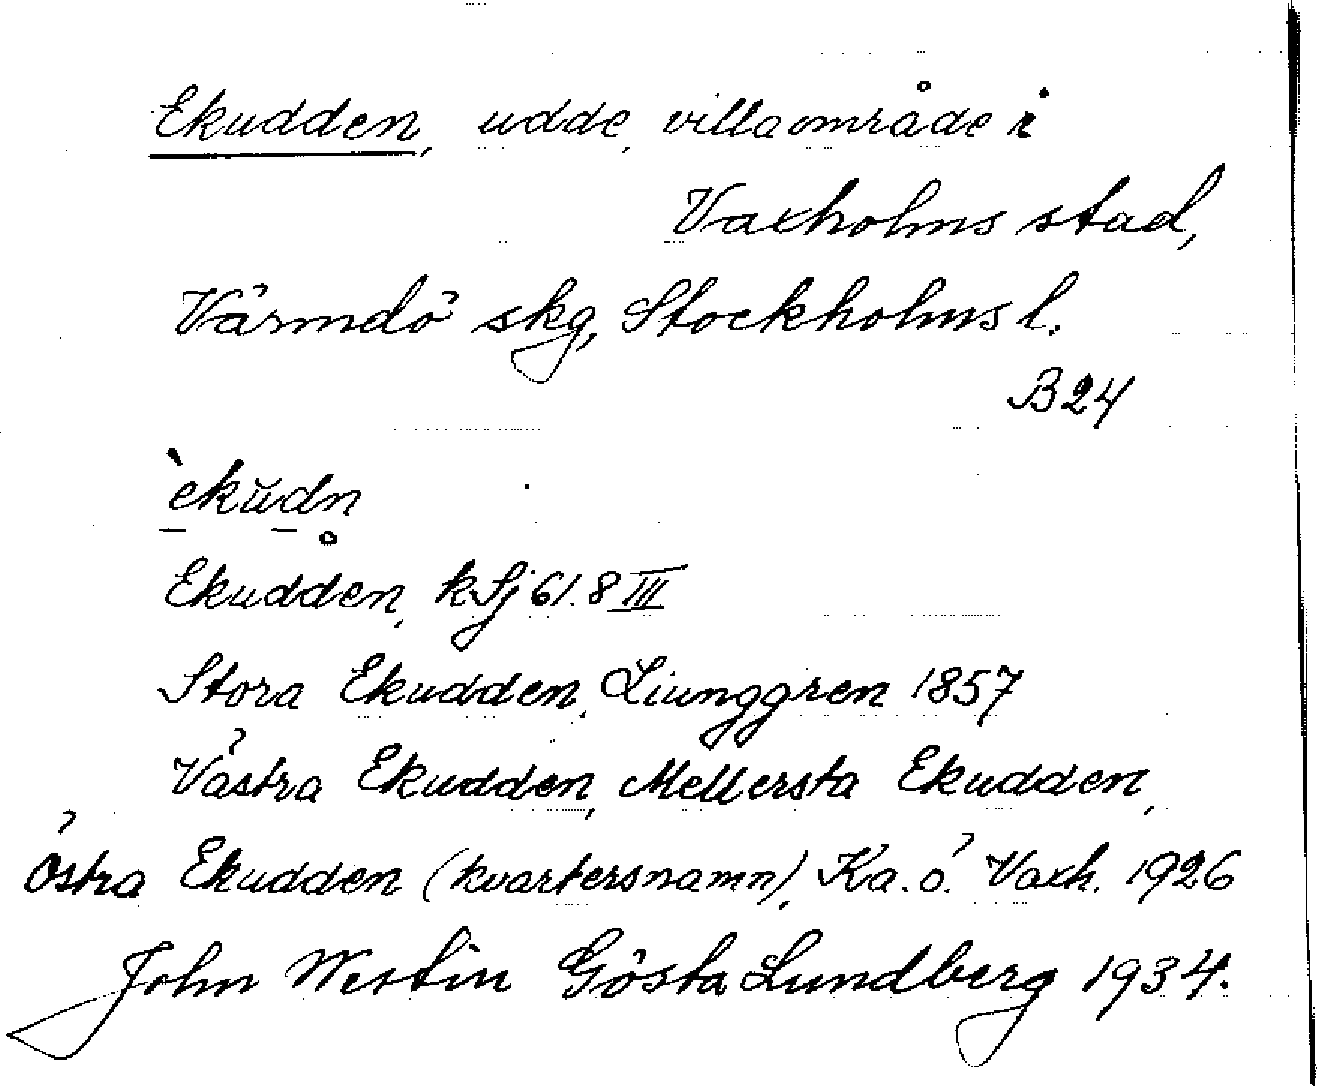 Ekudden, udde, villaområde i
Vaxholms stad,
Värmdö skg, Stockholms l.
B24
`ekŭdn̥
Ekudden, kSj 61.8 III
Stora Ekudden, Liunggren 1857
Västra Ekudden, Mellersta Ekudden,
östra Ekudden (kvartersnamn), Ka. ö. Vaxh. 1926
John Westin Gösta Lundberg 1934.